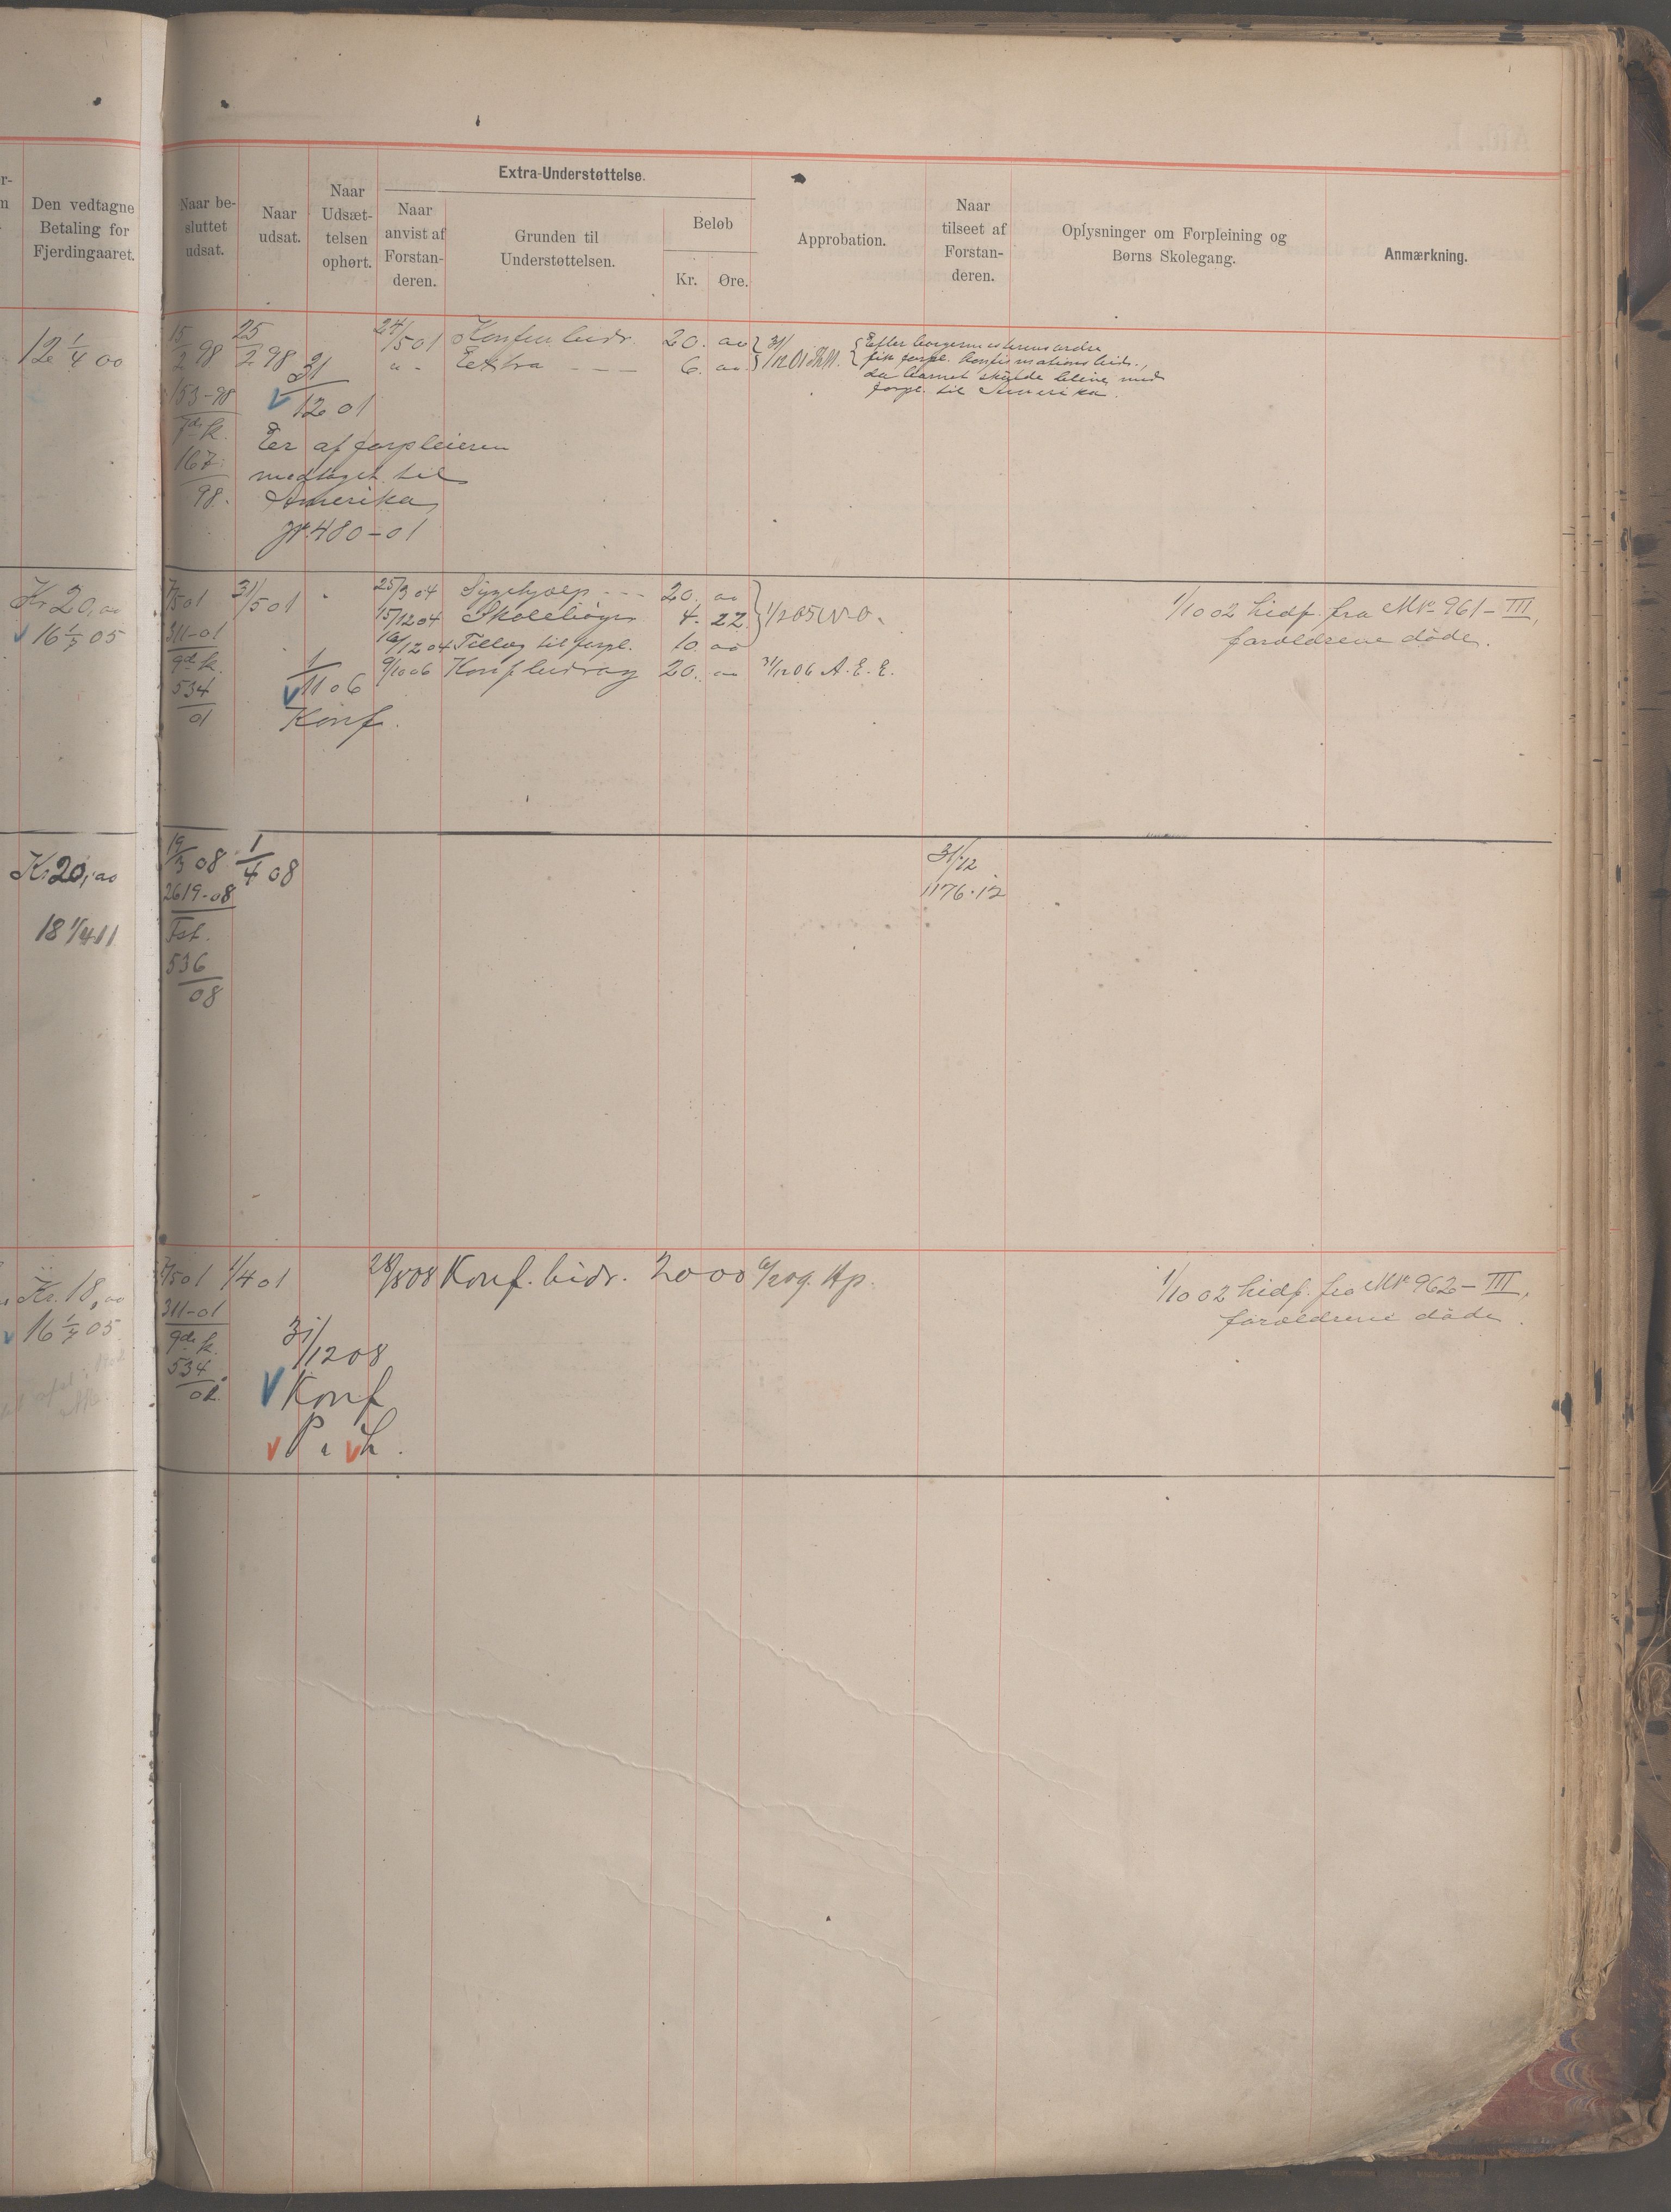 Den vedtagne
Betaling for
Fjerdingaaret.
Naar be-
sluttet
udsat.
Naar
udsat.
Naar
Udsæt-
telsen
ophørt.
Extra-Understøttelse.
Naar
anvist af
Forstan-
deren.
Grunden til
Understøttelsen.
Beløb
Kr. Øre.
Approbation.
Naar
tilseet af
Forstan-
deren.
Oplysninger om Forpleining og
Børns Skolegang.
Anmærkning.
12 1/4 00
15/2 98 25/2 98
153-98
167
98.
31/12 01
Er af forpleieren
medtaget til
Amerika
Jr 480-01
24/5 01 Konfm bidr. 20. 00
" - Extra - - - 6. 00
31/12 01
Efter borgermesterens ordre
fik forpl. konfirmations bidr.,
da barnet skulde blive med
forpl. til Amerika.
Kr 20,00
16 1/7 05
7/5 01 31/5 01
311-01
9de k.
534
01
1/11 06
Konf.
25/3 04 Sygehjælp - - - 20. 00
15/12 04 Skolebøger 4. 22
16/12 04 Tillæg til forpl. 10. 00
9/10 06 Konf bidrag 20. 00 31/12 06 A. E. E.
1/10 02 hidf. fra Nr 961-III,
forældrene døde.
Kr 20,00
18 1/4 11
19/3 08 1/4 08
2619-08
Fst.
536
08
31/12
1176.12
Kr. 18,00
16 1/7 05
7/5 01 1/4 01
311-01
9de k.
534
01
31/12 08
Konf
28/8 08 Konf. bidr. 20 00 6/2 09. Ap.
1/10 02 hidf. fra Nr 962-III,
forældrene døde.